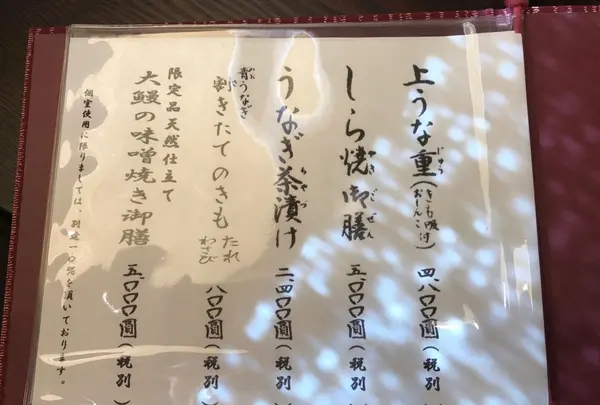 上うな重(きも吸付 おしんこ) 四、八〇〇圓(税別
じゅう
しら焼御膳 五、〇〇〇圓(税別
やき ごぜん
うなぎ茶漬け 二、四〇〇圓(税別
ちゃづ
青うなぎ
割きたてのきも たれ わさび 八〇〇圓(税別
限定品天然仕立て
大鰻の味噌焼き御膳 五、〇〇〇圓(税別
個室使用に限りましては、別途一〇%を頂いております。